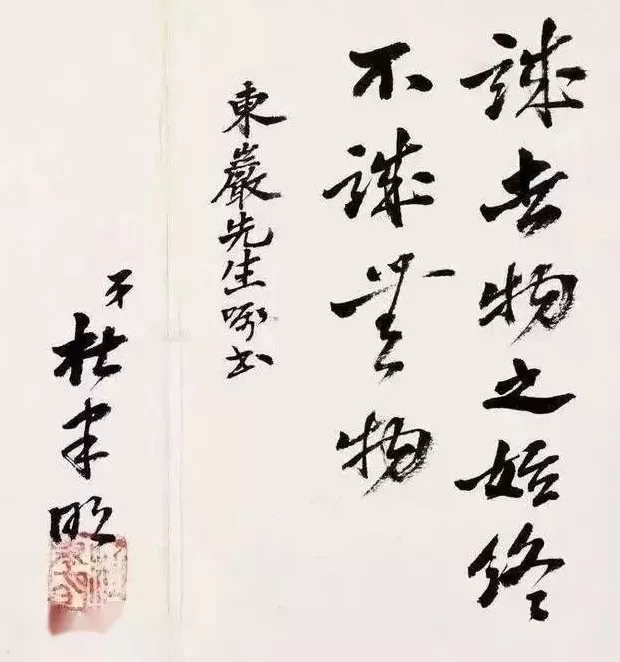 誠者物之始終
不誠無物
東巖先生嘱书
弟杜聿明